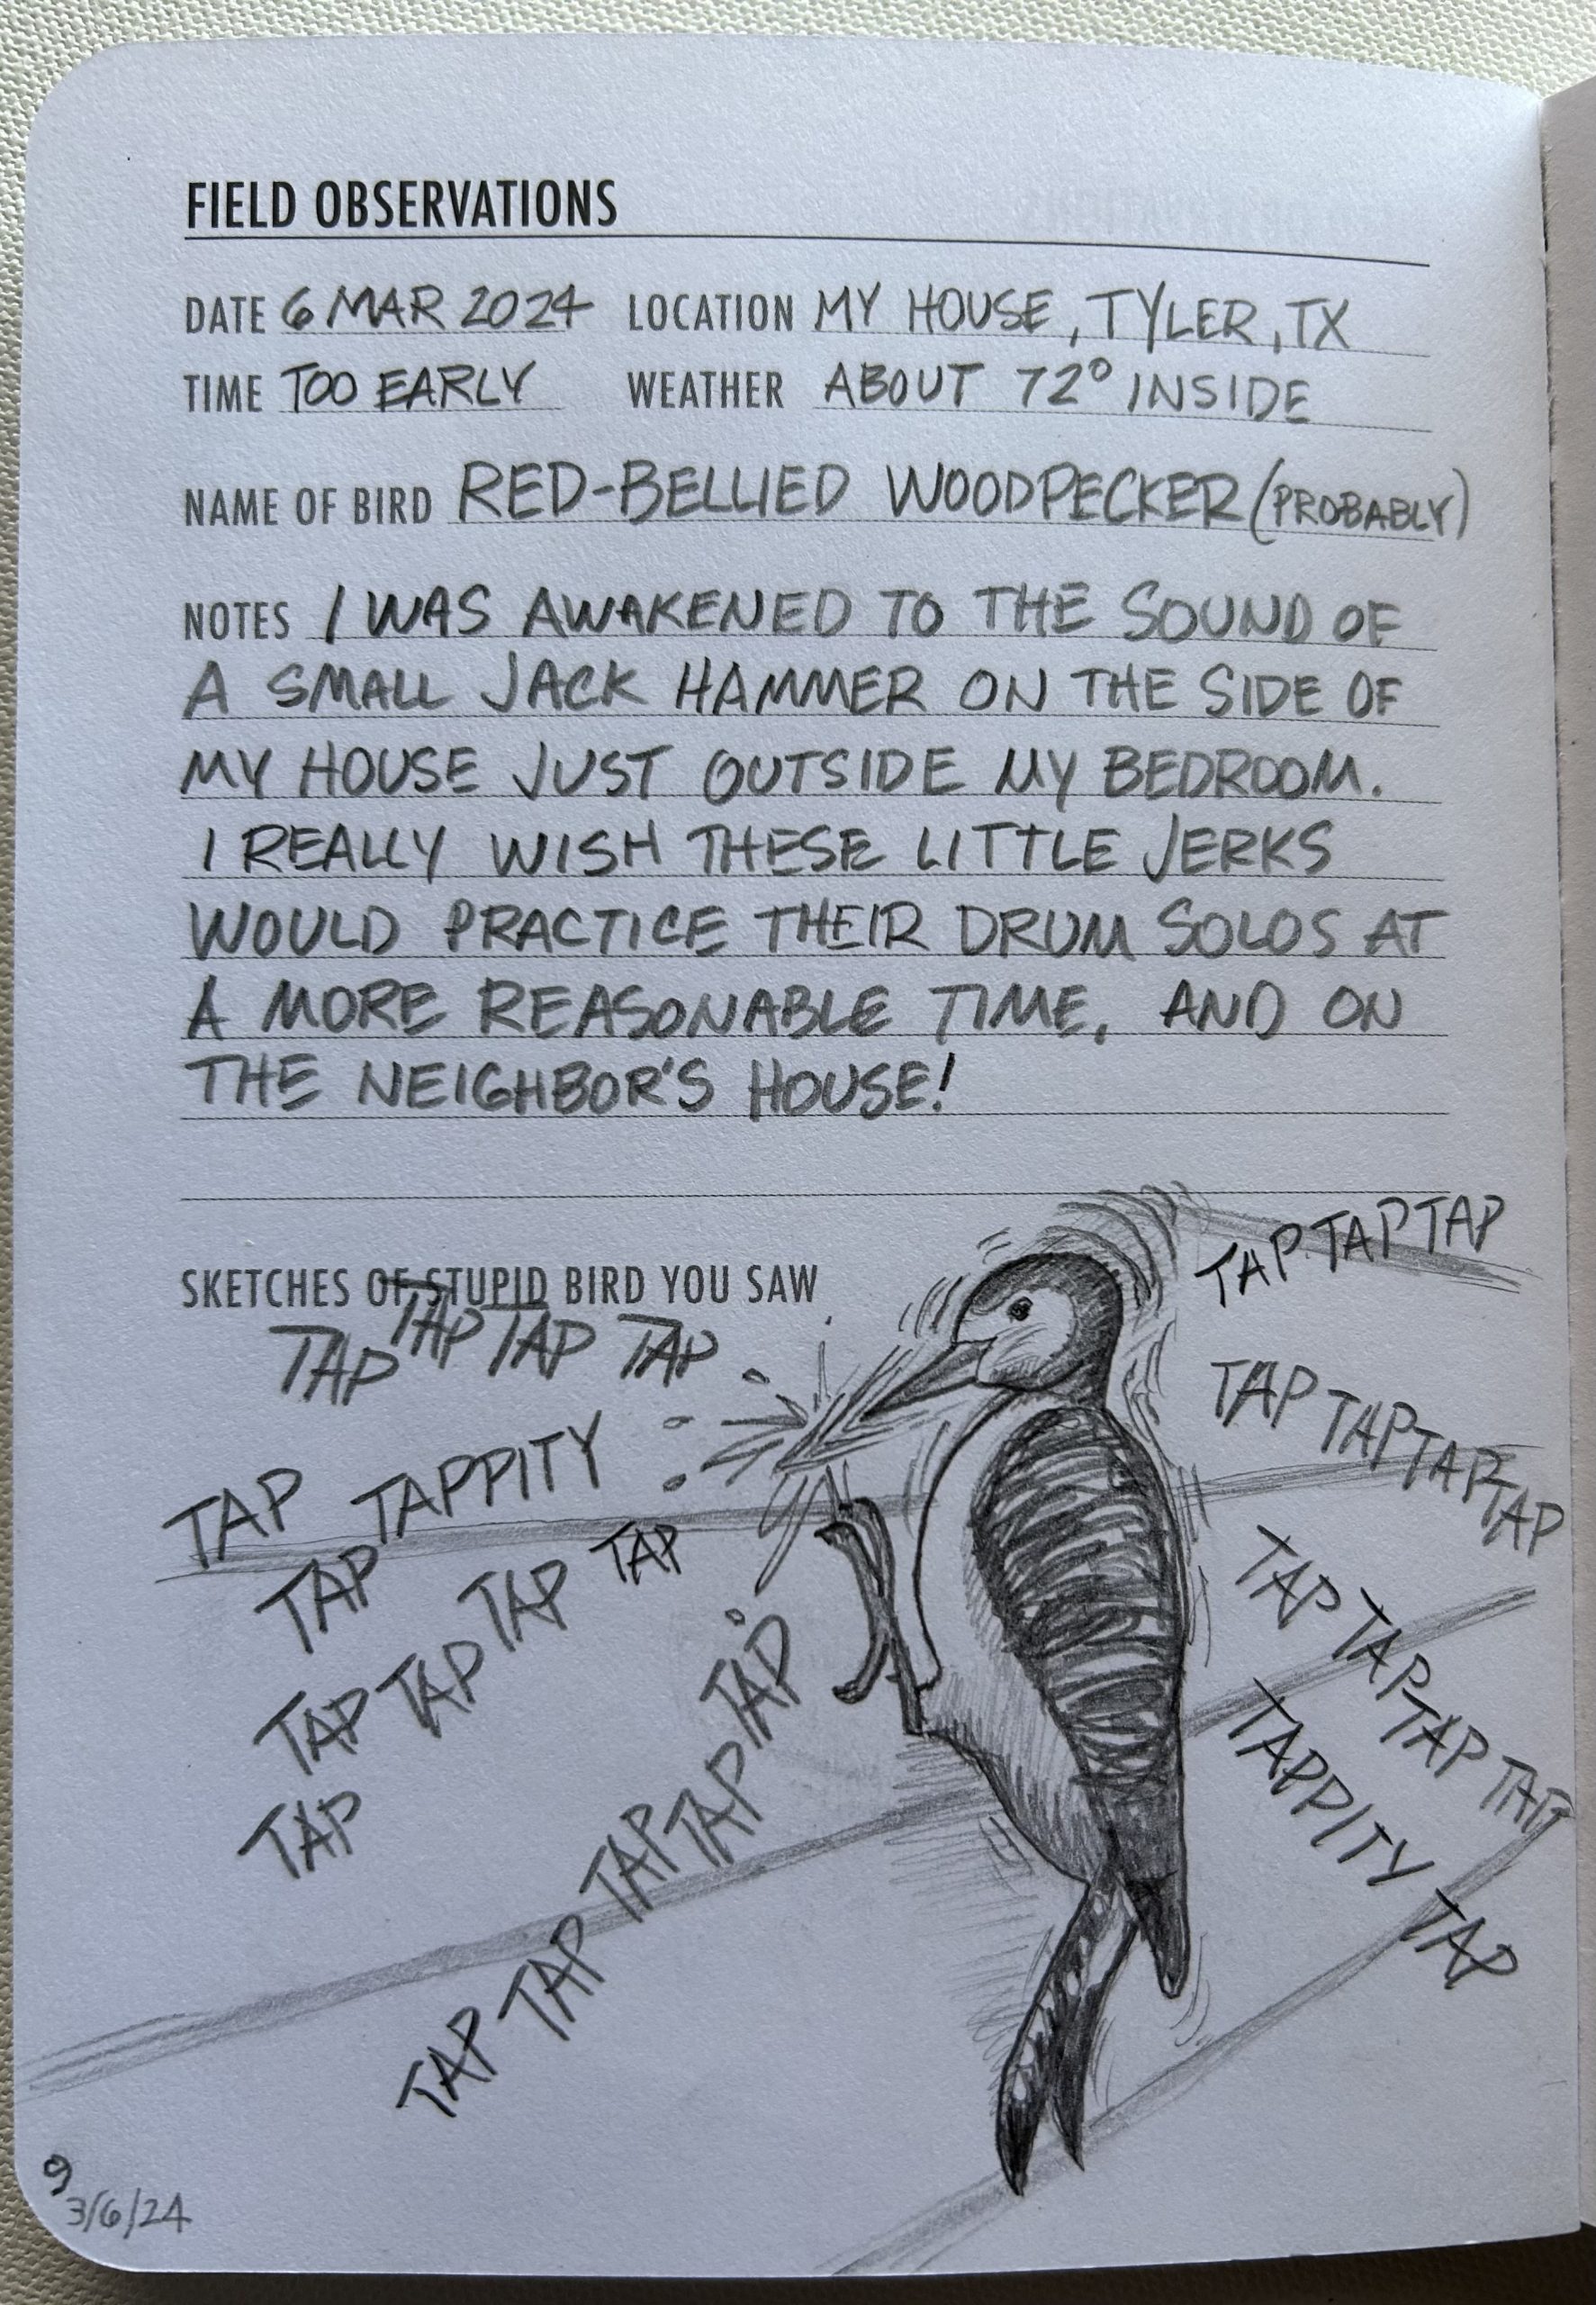 FIELD OBSERVATIONS
DATE 6 MAR 2024 LOCATION MY HOUSE, TYLER, TX
TIME TOO EARLY WEATHER ABOUT 72° INSIDE
NAME OF BIRD RED-BELLIED WOODPECKER (PROBABLY)
NOTES I WAS AWAKENED TO THE SOUND OF
A SMALL JACK HAMMER ON THE SIDE OF
MY HOUSE JUST OUTSIDE MY BEDROOM.
I REALLY WISH THESE LITTLE JERKS
WOULD PRACTICE THEIR DRUM SOLOS AT
A MORE REASONABLE TIME, AND ON
THE NEIGHBOR'S HOUSE!
SKETCHES OF STUPID BIRD YOU SAW
TAP TAP TAP TAP
TAP TAPPITY
TAP TAP TAP
TAP TAP
TAP
TAP TAP TAP TAP TAP
TAP TAP TAP
TAP TAP TAP TAP
TAP TAP TAP TAP
TAPPITY TAP
9
3/6/24